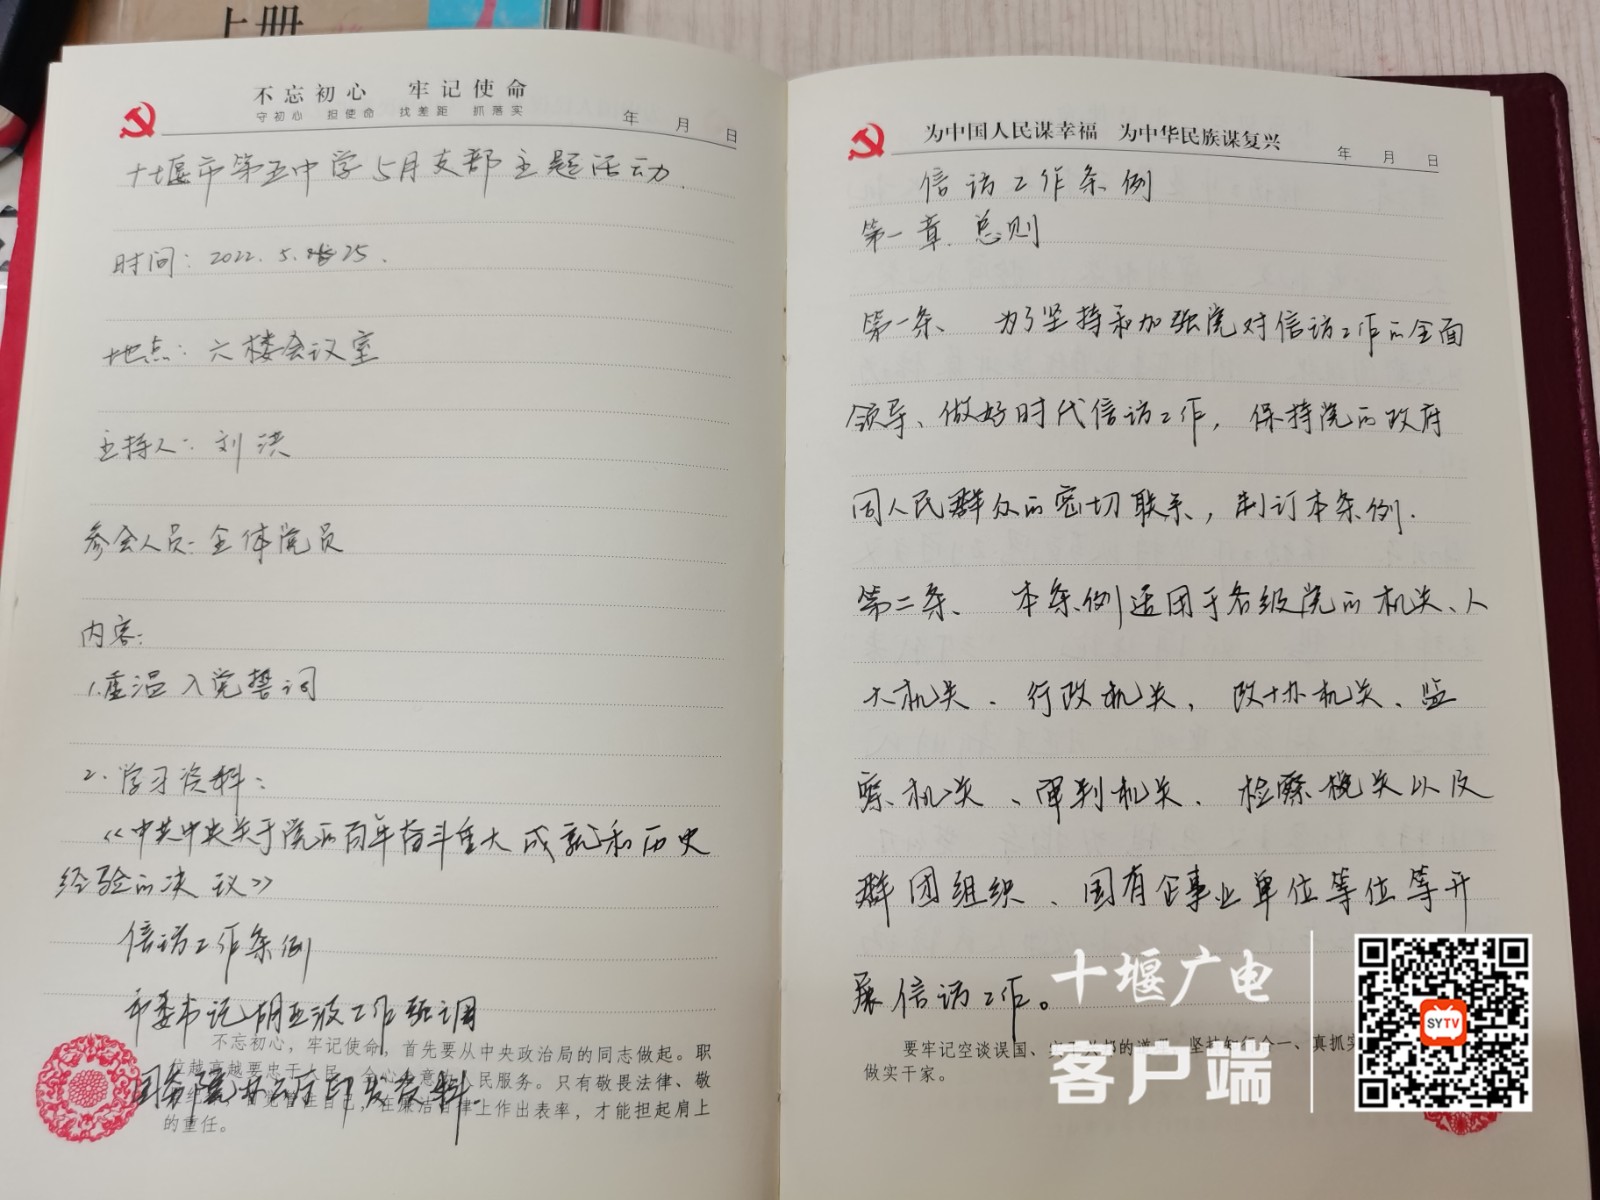 上册
不忘初心 牢记使命
守初心 担使命 找差距 抓落实
年 月 日
十堰市第五中学5月支部主题活动.
时间：2022.5.25.
地点：六楼会议室
主持人：刘洪
参会人员：全体党员
内容：
1.重温入党誓词
2.学习资料：
《中共中央关于党的百年奋斗重大成就和历史
经验的决议》
信访工作条例
市委书记胡亚波工作强调
国务院办公厅印发资料.
不忘初心，牢记使命，首先要从中央政治局的同志做起。职
位越高越要忠于人民，全心全意为人民服务。只有敬畏法律、敬
在廉洁自律上作出表率，才能担起肩上
的重任。
为中国人民谋幸福 为中华民族谋复兴
年 月 日
信访工作条例
第一章.总则
第一条、 为了坚持和加强党对信访工作的全面
领导、做好时代信访工作，保持党的政府
同人民群众的密切联系，制订本条例.
第二条、 本条例适用于各级党的机关、人
大机关、行政机关，政协机关、监
察机关、审判机关、检察机关以及
群团组织、国有企事业单位等位等开
展信访工作。
要牢记空谈误国、 坚持知行合一、真抓实
做实干家。
十堰广电
客户端
SYTV